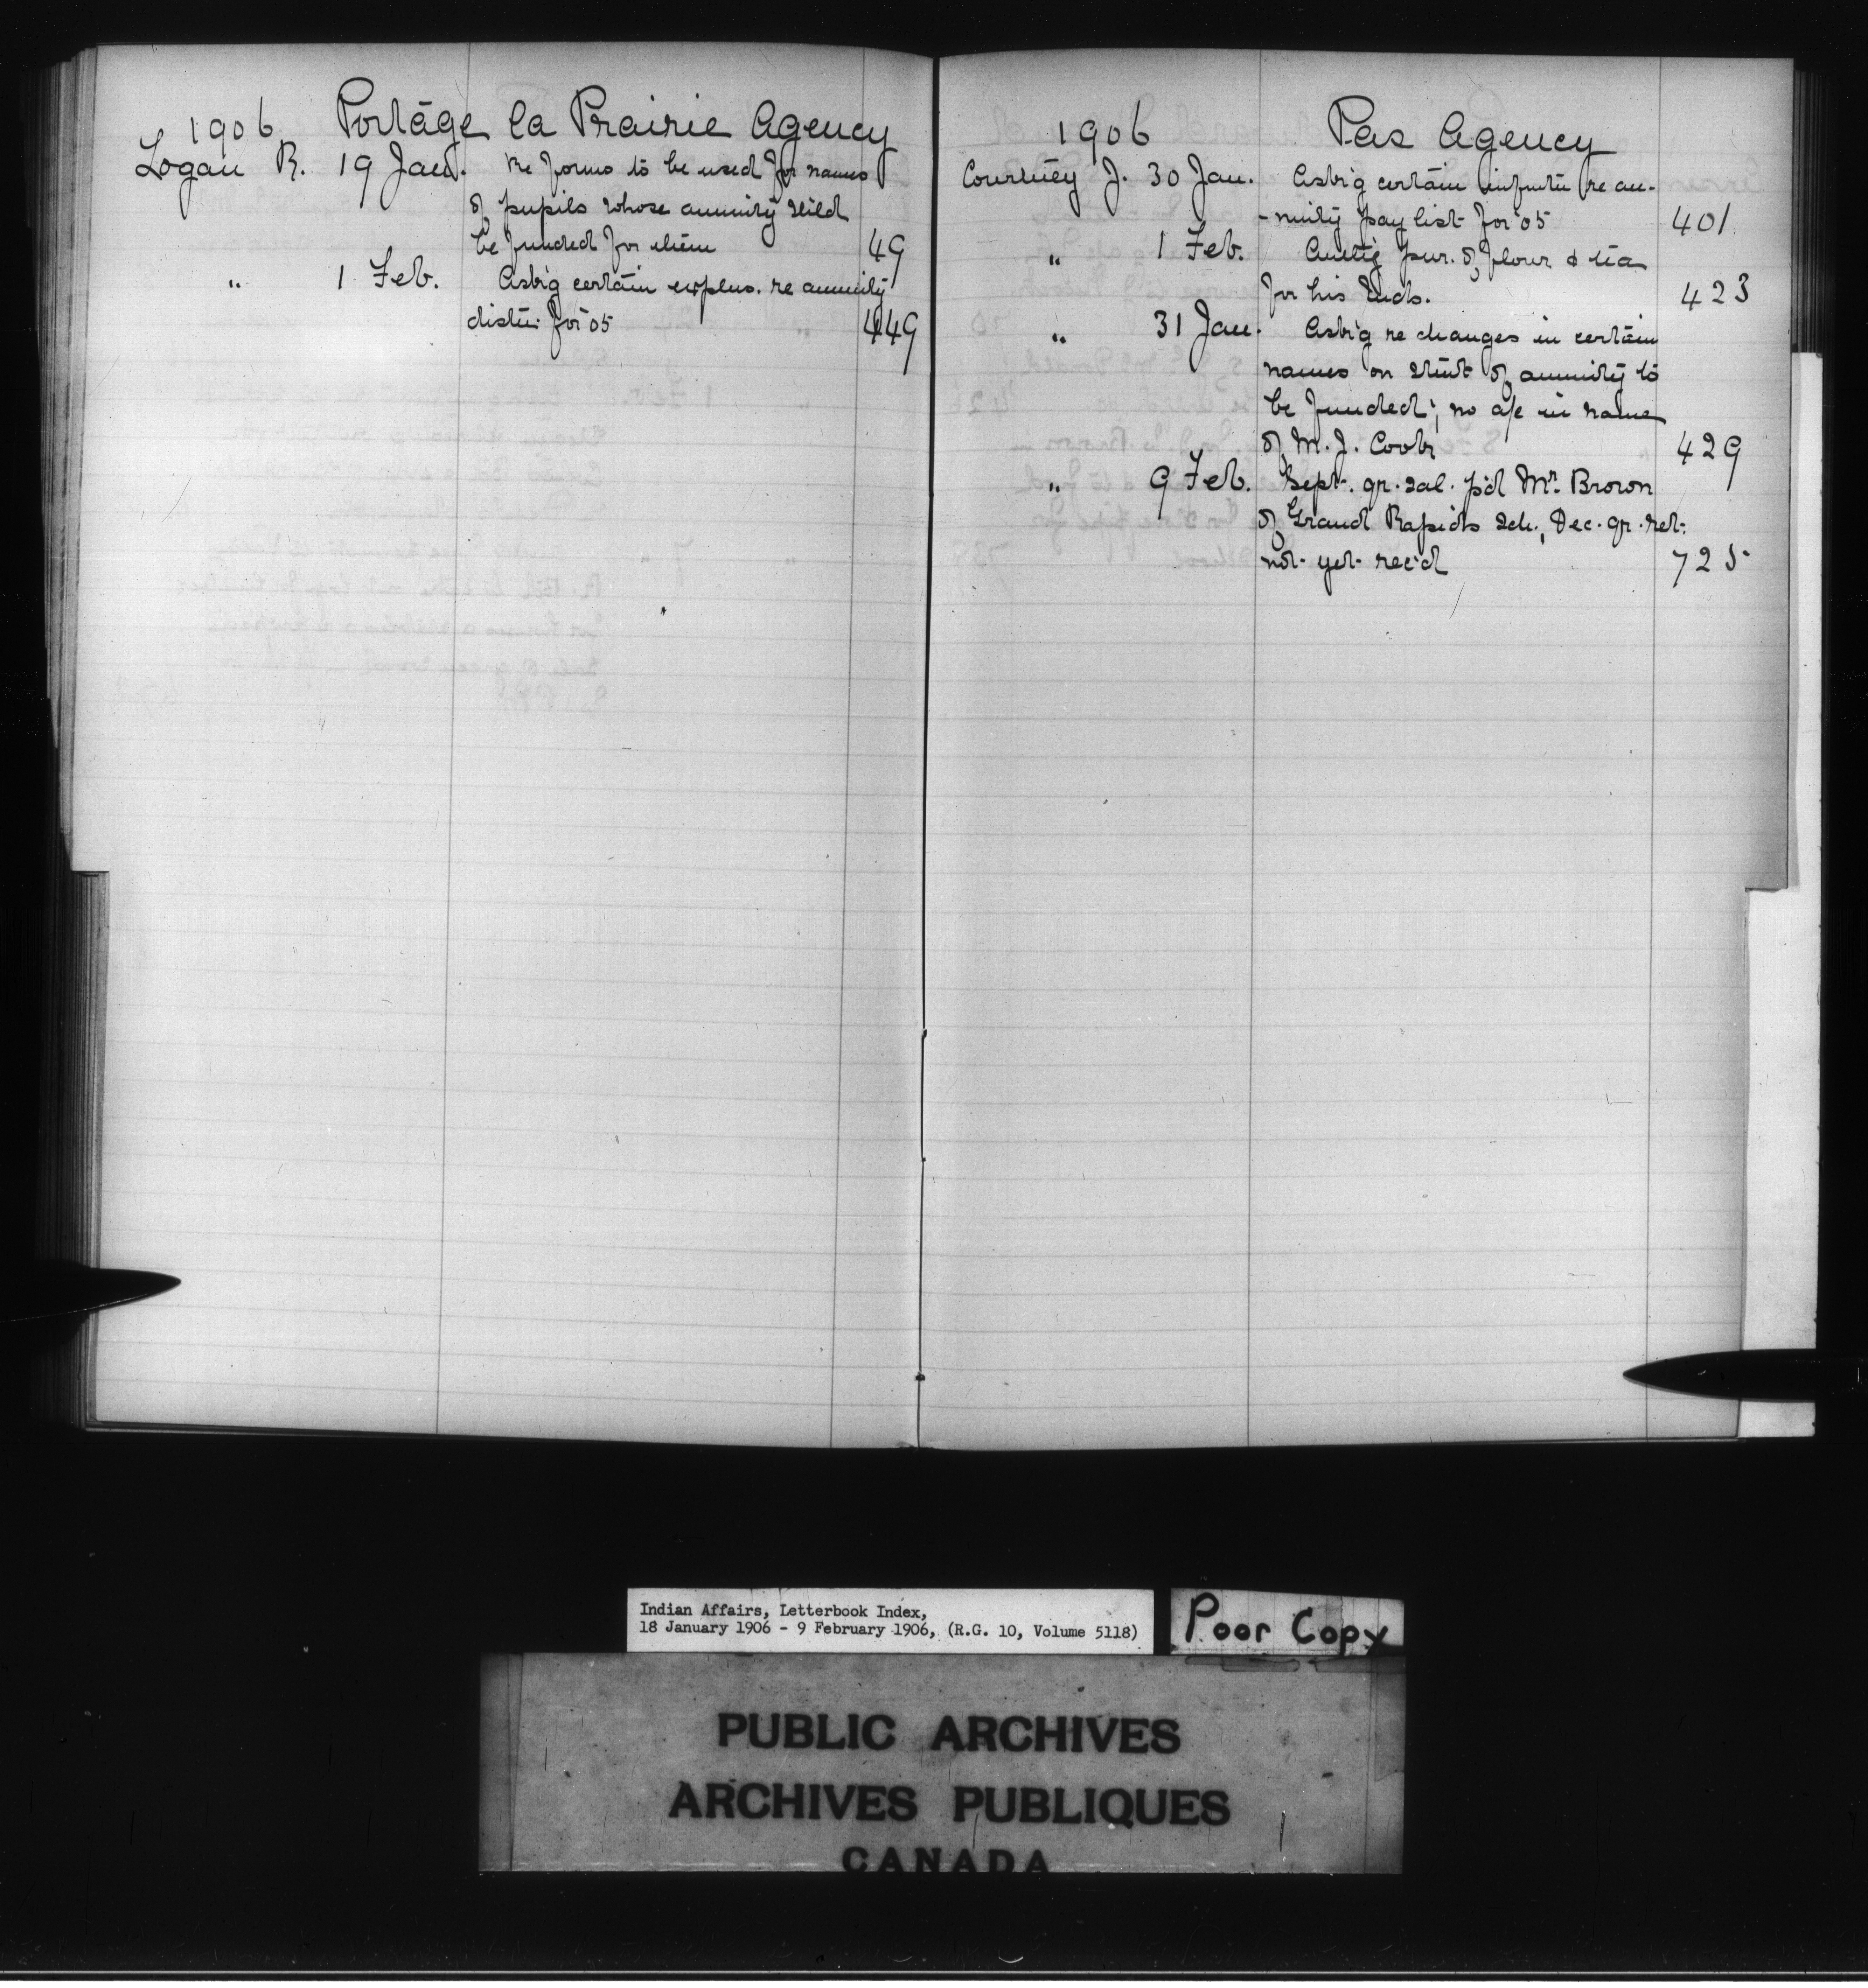 1906 Portage la Prairie Agency
Logan R. 19 Jan. Re forms to be used for names
of pupils whose annuity shld
be funded for them 49
" 1 Feb. Ask'g certain explns. re annuity
distn. for '05 449
1906 Pas Agency
Courtney J. 30 Jan. Ask'g certain infmtn re an-
-nuity pay list for '05 401
" 1 Feb. Auth'g pur. of flour & tea
for his Inds. 423
" 31 Jan. Ask'g re changes in certain
names on stmt of annuity to
be funded; no a/c in name
of M. J. Cook 429
" 9 Feb. Sept. qr. sal. p'd Mr. Brown
of Grand Rapids Sch., Dec. qr. ret.
not yet rec'd 725
Indian Affairs, Letterbook Index,
18 January 1906 - 9 February 1906, (R.G. 10, Volume 5118)
Poor Copy
PUBLIC ARCHIVES
ARCHIVES PUBLIQUES
CANADA